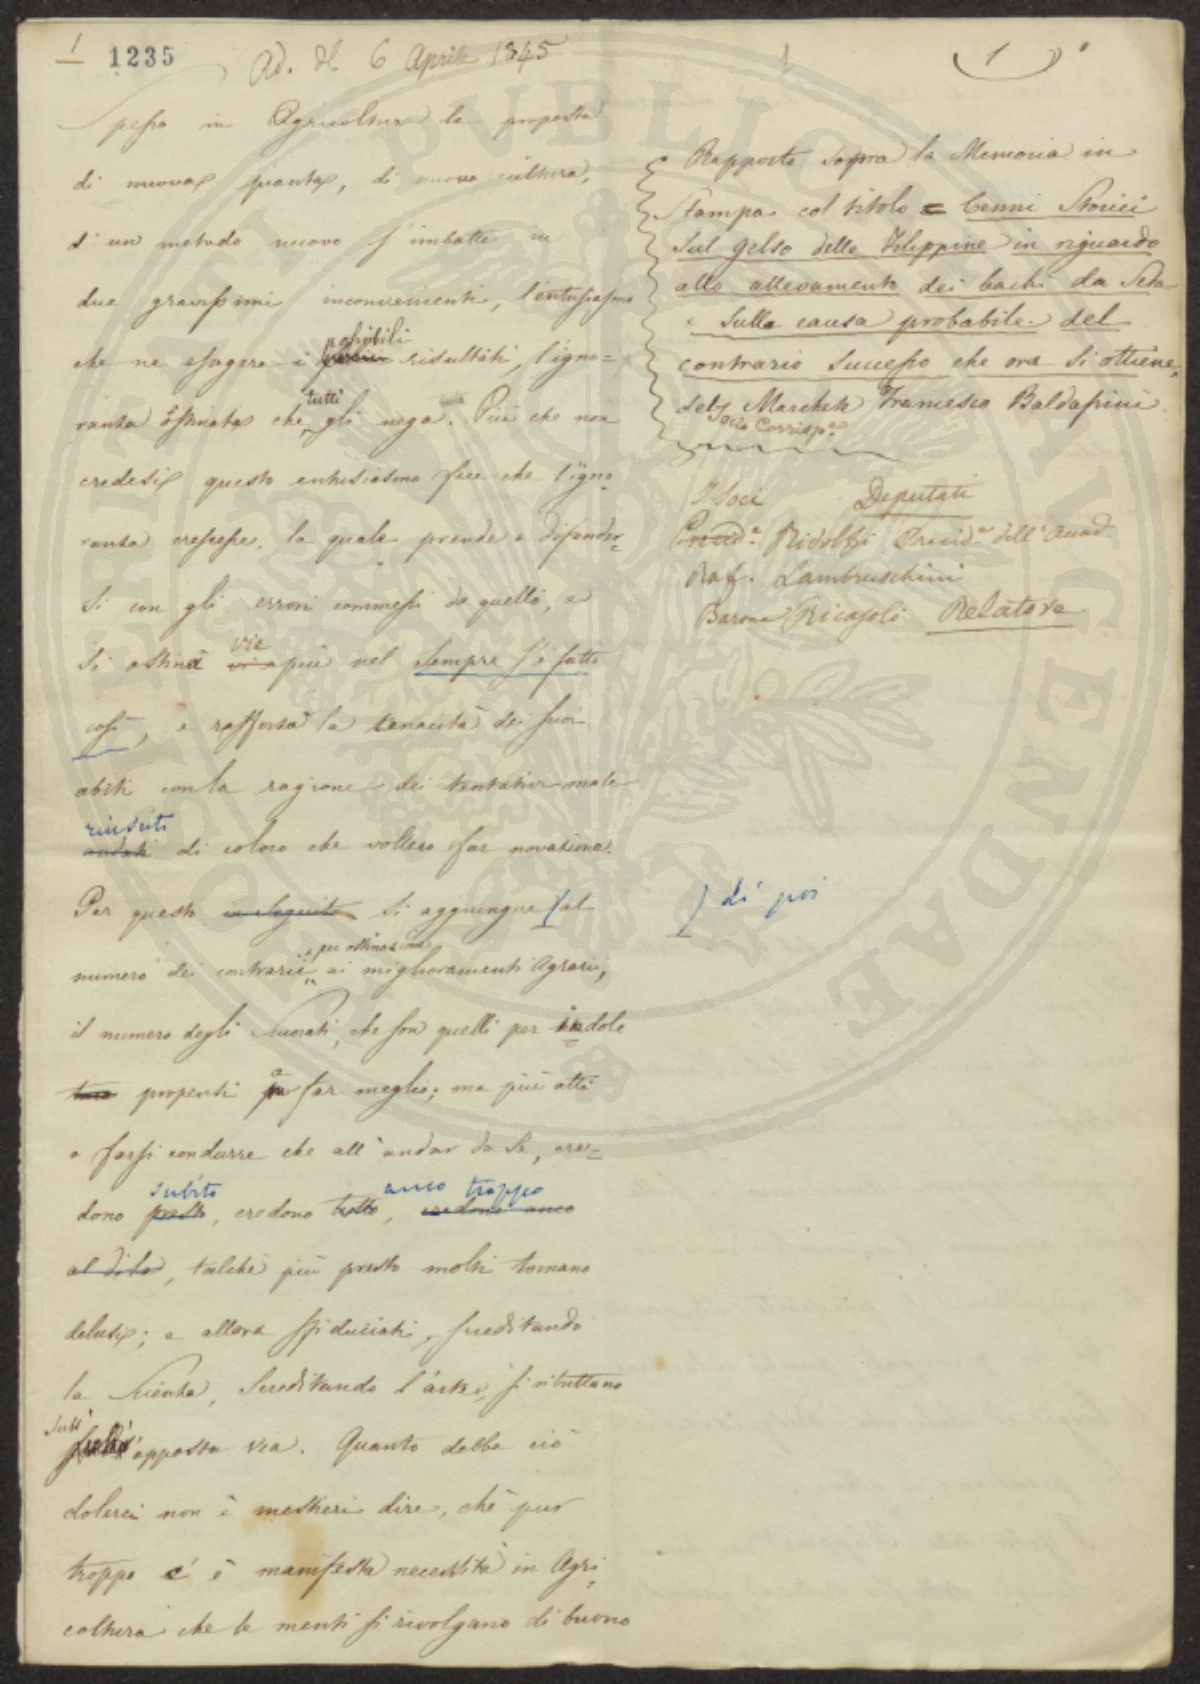 1
1235
Ad. del 6 Aprile 1845
1
Spesso in Agricoltura la proposta
di nuova pianta, di nuova cultura,
d'un metodo nuovo s'imbatte in
due gravissimi inconvenienti, l'entusiasmo
che ne esagera i possibili risultati, l'igno=
ranza ostinata che tutti gli nega. Più che non
credesi questo entusiasmo fece che l'igno=
ranza crescesse, la quale prende a difender=
si con gli errori commessi da quello, e
si ostina vie più nel sempre s'è fatto
così, e rafforza la tenacità dei suoi
abiti con la ragione dei tentativi male
riusciti
andati di coloro che vollero far novazione.
Per questo in seguito si aggiunge al
numero dei contrarii per ostinazione ai miglioramenti Agrarii,
il numero degli Svogliati, che son quelli per indole
propensi a far meglio; ma più atti
a farsi condurre che all'andar da se, cre=
subito anco troppo
dono presto, credono tutto, credono anco
al dito, talchè più presto molti tornano
delusi; e allora sfiduciati, screditando
la Scienza, screditando l'arte, si ributtano
sull'
opposta via. Quanto debba ciò
dolerci non è mestieri dire, chè pur
troppo c'è manifesta necessità in Agri=
coltura che le menti si rivolgano di buono
Rapporto sopra la Memoria in
Stampa col titolo = Cenni Storici
sul gelso delle Filippine in riguardo
allo allevamento dei bachi da Seta
e sulla causa probabile del
contrario successo che ora si ottiene,
del Marchese Francesco Baldassini
Socio Corrisp.e
I Soci Deputati
Ridolfi Presid.e dell'Accad.
Raf. Lambruschini
Barone Ricasoli Relatore
) di poi